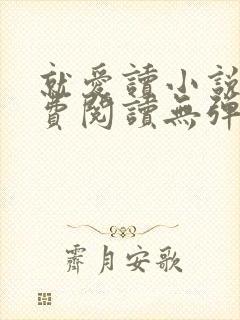 就愛讀小說
費閱讀無彈
霽月安歌